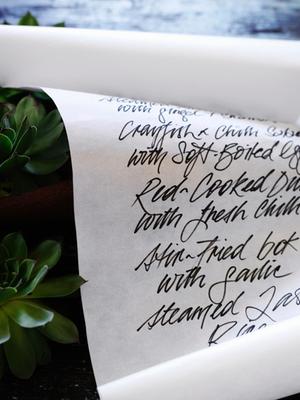 with ginger
Crayfish & Chilli Soba
with Soft-Boiled Eg
Red-Cooked Du
with fresh Chilli
Stir-Fried bok
with garlic
Steamed Jas
Rice